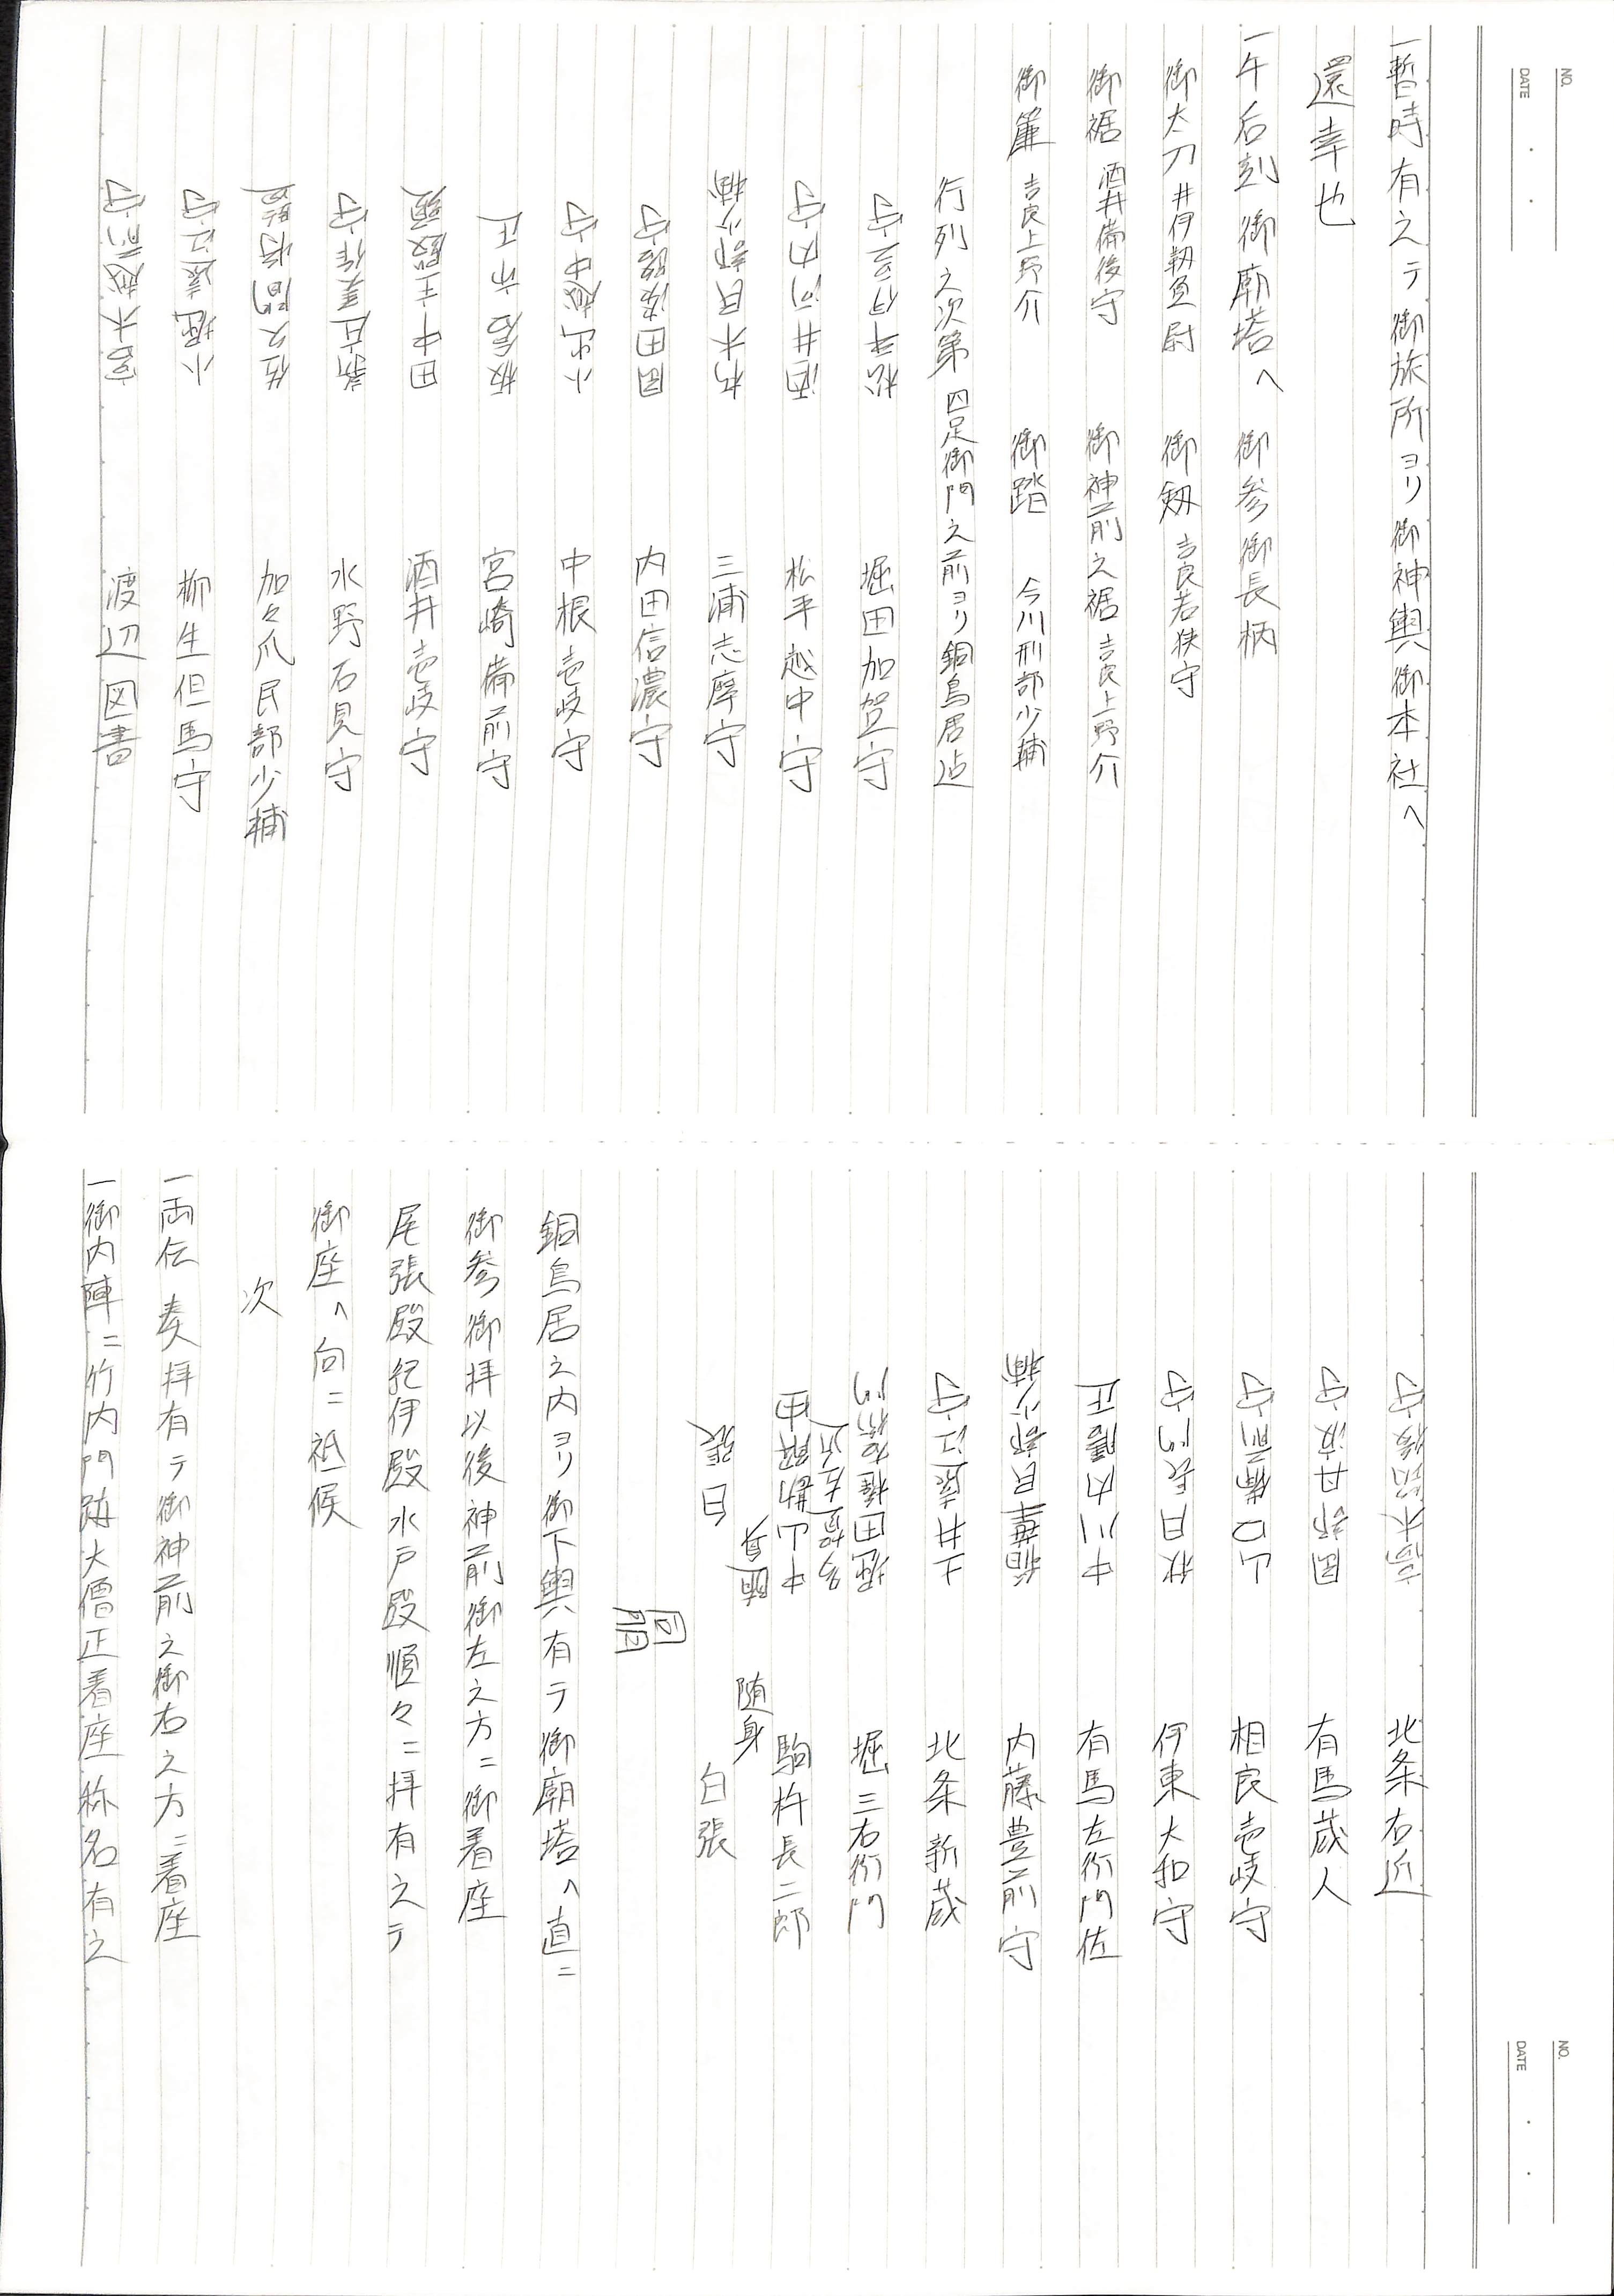 NO.
DATE
一暫時有之テ御旅所ヨリ御神輿御本社へ
還幸也
一午后刻御廟塔へ 御参御長柄
御太刀 井伊靱負尉 御剱 吉良若狭守
御裾 酒井備後守 御神前之裾 吉良上野介
御簾 吉良上野介 御踏 今川刑部少輔
行列之次第 四足御門之前ヨリ銅鳥居迠
松平伊豆守 堀田加賀守
酒井河内守 松平越中守
朽木民部少輔 三浦志摩守
岡田淡路守 内田信濃守
小出越中守 中根壱岐守
板倉市正 宮崎備前守
田中主殿頭 酒井壱岐守
新庄美作守 水野石見守
佐久間将監 加々爪民部少輔
小堀遠江守 柳生但馬守
宮木越前守 渡辺図書
NO.
DATE
高木筑後守 北条右近
岡部丹波守 有馬蔵人
山口備前守 相良壱岐守
秋月長門守 伊東大和守
中川内膳正 有馬左衛門佐
稲葉民部少輔 内藤豊前守
土井遠江守 北条新蔵
堀田権右衛門 堀三右衛門
多賀左近
中山勘解由 駒杵長二郎
随身 随身
白張 白張
同朋
銅鳥居之内ヨリ御下輿有テ御廟塔へ直ニ
御参御拝以後神前御左之方ニ御着座
尾張殿紀伊殿水戸殿順々ニ拝有之テ
御座へ向ニ祗候
次
一両伝奏拝有テ御神前之御右之方ニ着座
一御内陣ニ竹内門跡大僧正着座称名有之